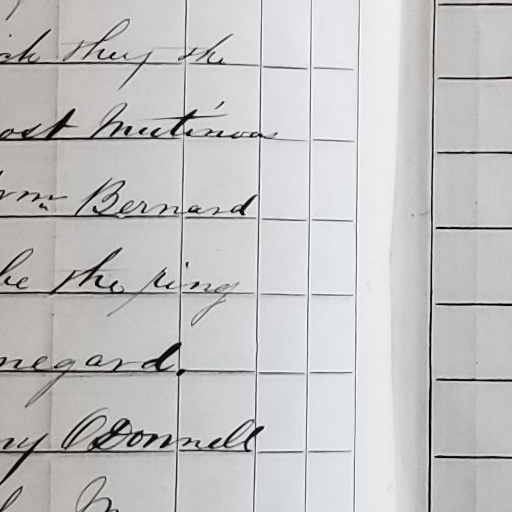 they the
ost Mutinous
Wm Bernard
be the ring
negard.
ny O'Donnell